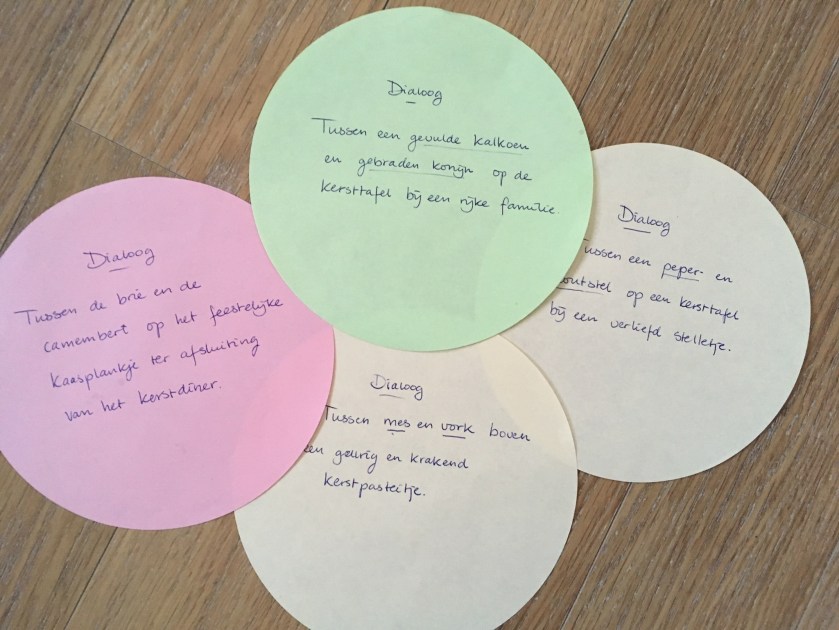 Dialoog
Tussen een gevulde kalkoen
en gebraden konijn op de
kersttafel bij een rijke familie.
Dialoog
Tussen de brie en de
camembert op het feestelijke
kaasplankje ter afsluiting
van het kerstdiner.
Dialoog
Tussen een peper- en
zoutstel op een kersttafel
bij een verliefd stelletje.
Dialoog
Tussen mes en vork boven
een geurig en krakend
kerstpasteitje.